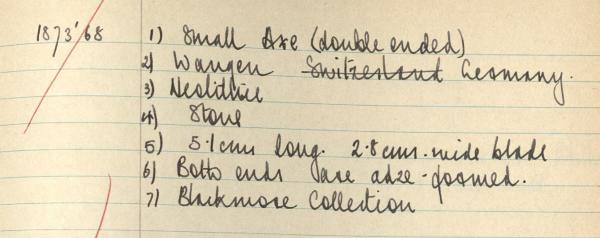 1873'68 1) Small Axe (double ended)
2) Wangen Switzerland Germany.
3) Neolithic
4) Stone
5) 5.1cms long. 2.8cms. wide blade
6) Both ends are adze-formed.
7) Blackmore Collection